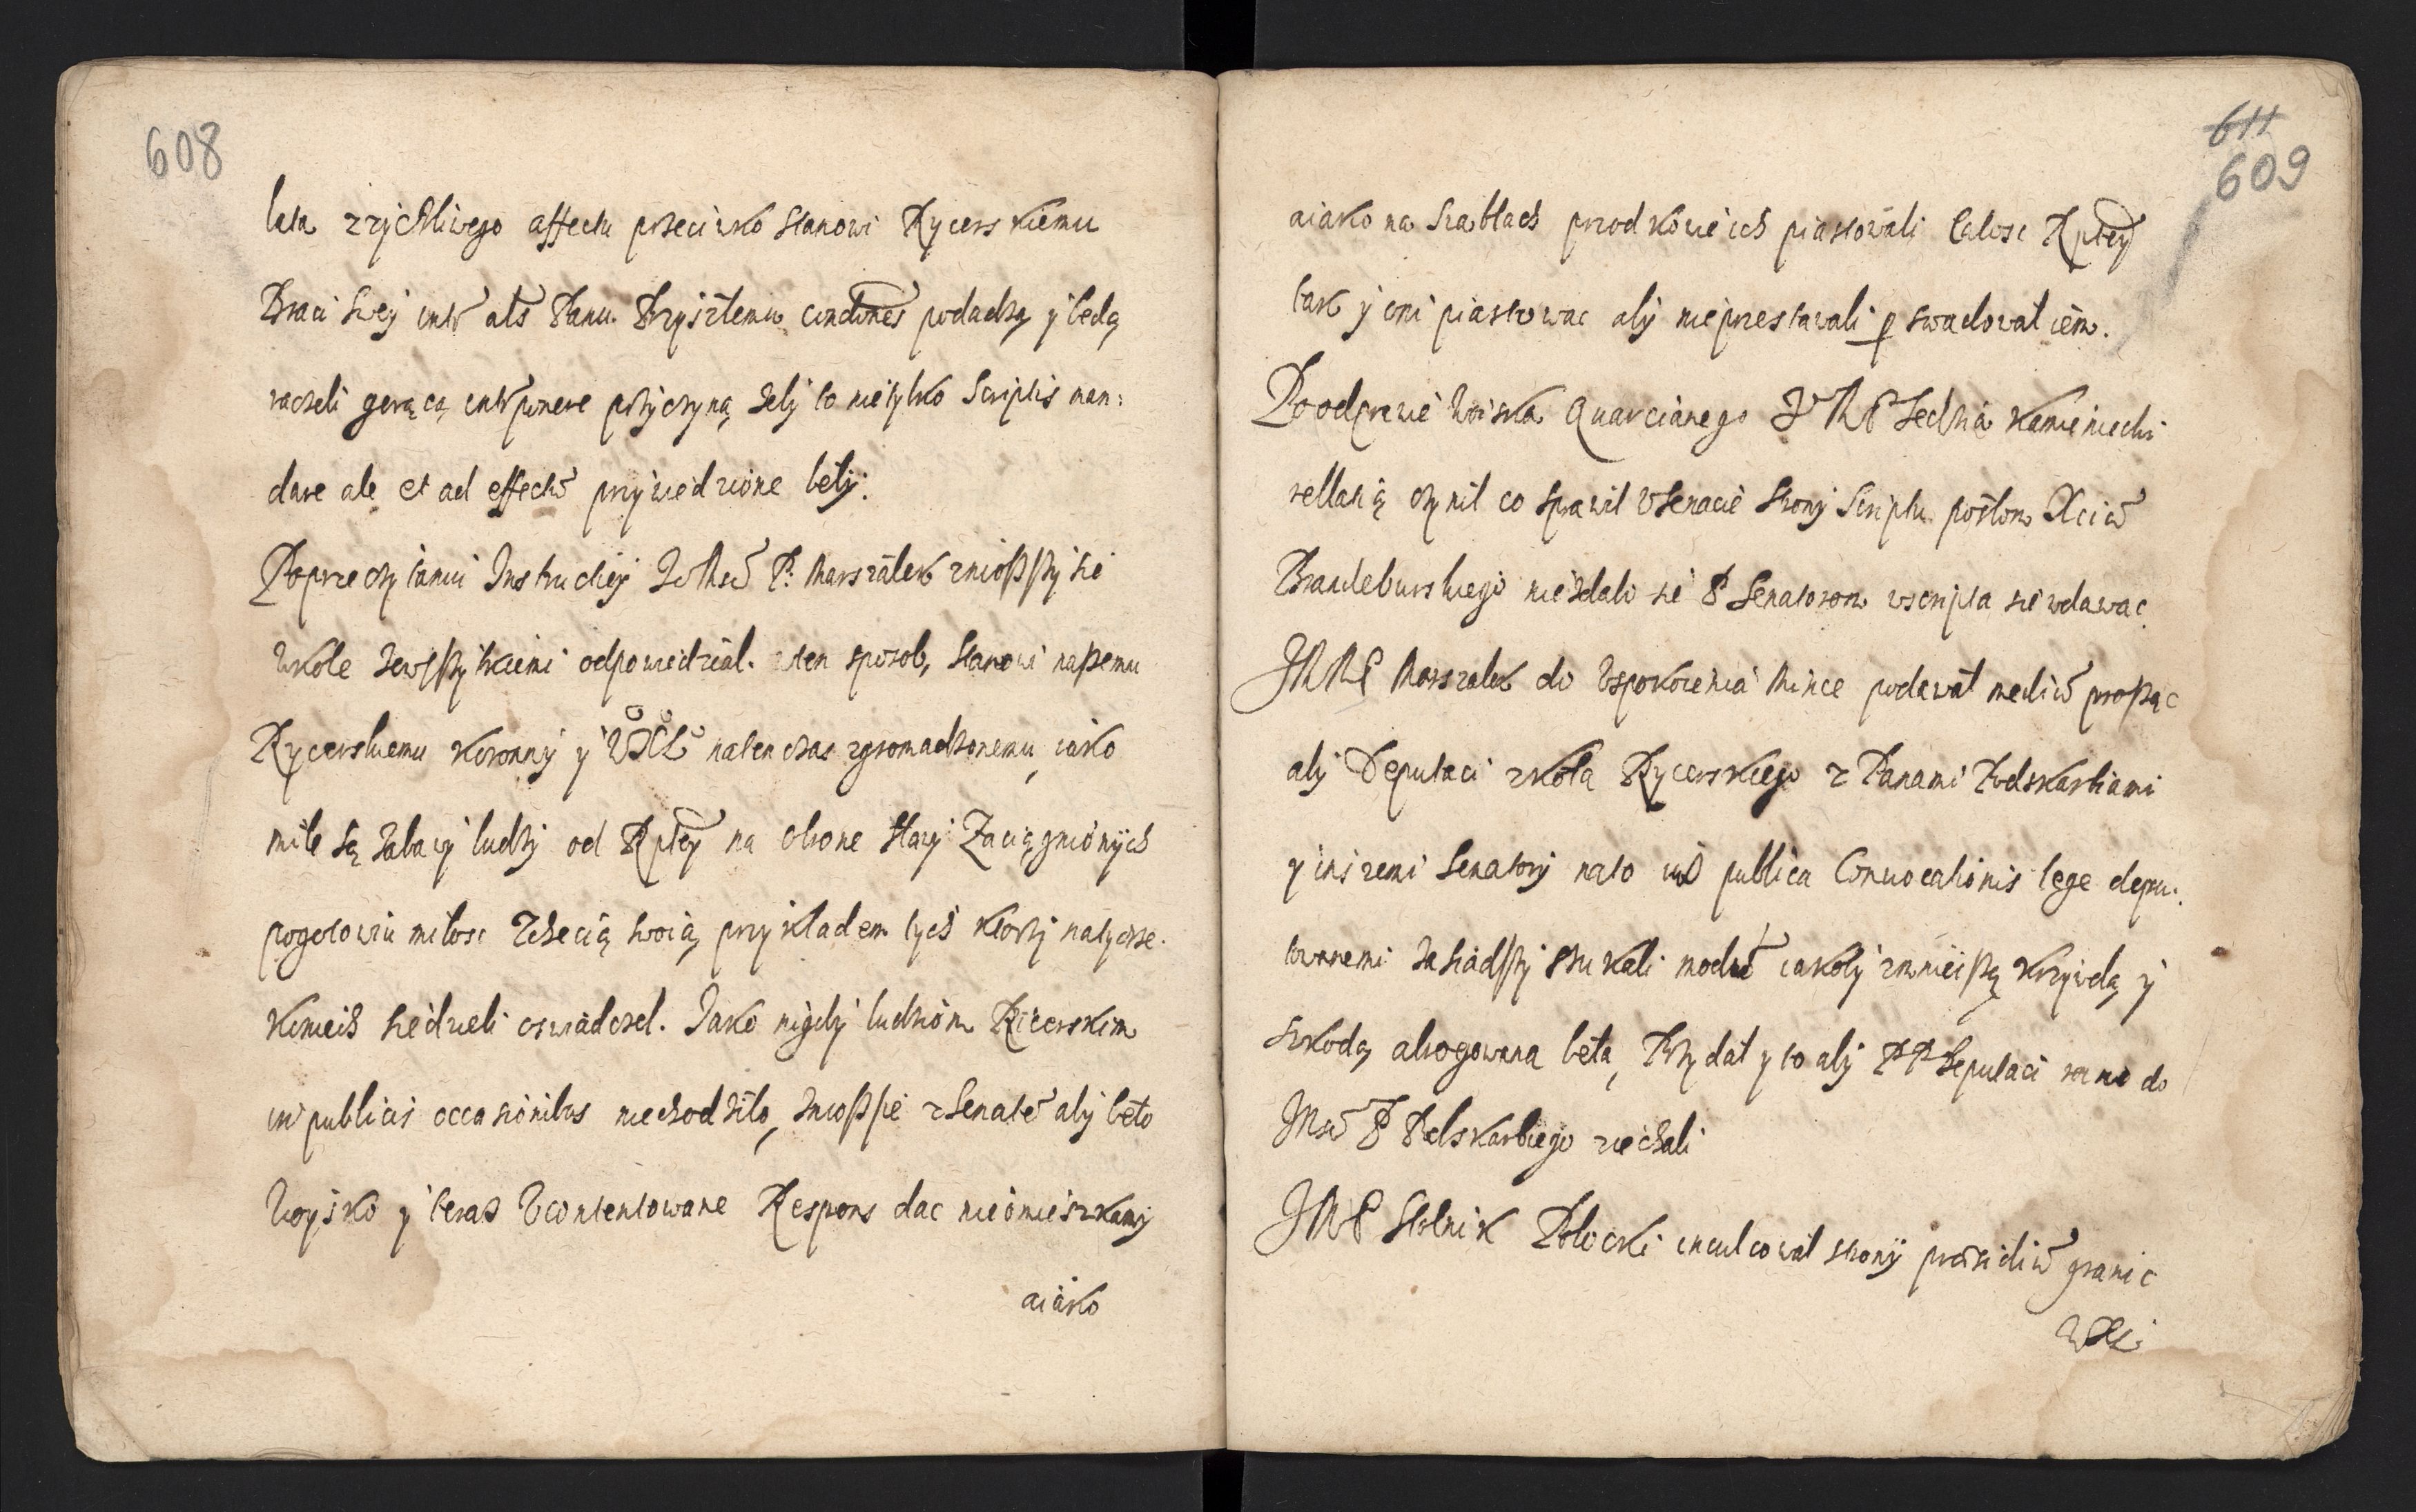 608
lata zzÿchliwego affectu przeciwko Stanowi Rycerskiemu
Braci swej intr alts Panu Przyszłemu condones podadzą y będą
raczeli gorącą intrponere przyczyną żeby to nietylko Scriptis man:
dare ale et ad effectū przywiedzione belÿ.
Po przeczytaniu Instructiej Jo Msć P: Marszałek zniosszÿ sie
wkole zewszÿtkiemi odpowiedział. wten sposob, Stanowi naszemu
Rycerskiemu Koronnÿ y WXL natenczas zgromadzonemu, iako
miłe są zabawÿ ludzÿ od Rptey na obrone Stawÿ Zaciągnionÿch
pogotowiu miłosc Zchecią swoią, przykładem tych ktorzÿ natychże
Koniech siedzieli oswiadczel. Jako nigdÿ ludziom Ricerskim
in publicis occasionibus niechodziło, zniosszÿ zSenatē abÿ beło
Woÿsko y teraz Vcontentowane Respons dac nieomieszkamÿ
aiako
611
609
aiako na szablach przodkowie ich piastowali całosc Rptey
tak y oni piastowac abÿ nieprzestawali p swadował iem.
Po odprawie Woiska Quarcianego J M P Sedzia Kamieniecki
rellatią czÿnił co sprawił VSenacie stronÿ Scriptu posłom Xciū
Brandeburskiego niezdało sie P Senatorom wscripta sie wdawac
JMMP Marszałek do Vspokoienia Mince podawał mediū prosząc
abÿ Deputaci zkoła Rycerskiego z Panami Podskarbiami
y inszemi Senatorÿ nato iuż publica Conuocationis lege depu:
towanemi zasiadszÿ szukali modū iakobÿ zmnieiszą krzÿwdą y
szkodą abrogowana beła, Przÿdał y to abÿ PP Deputaci rano do
JMsć P Podskarbiego ziechali
JMP Stolnik Połocki inculcował stronÿ præsidiū granic
WXL